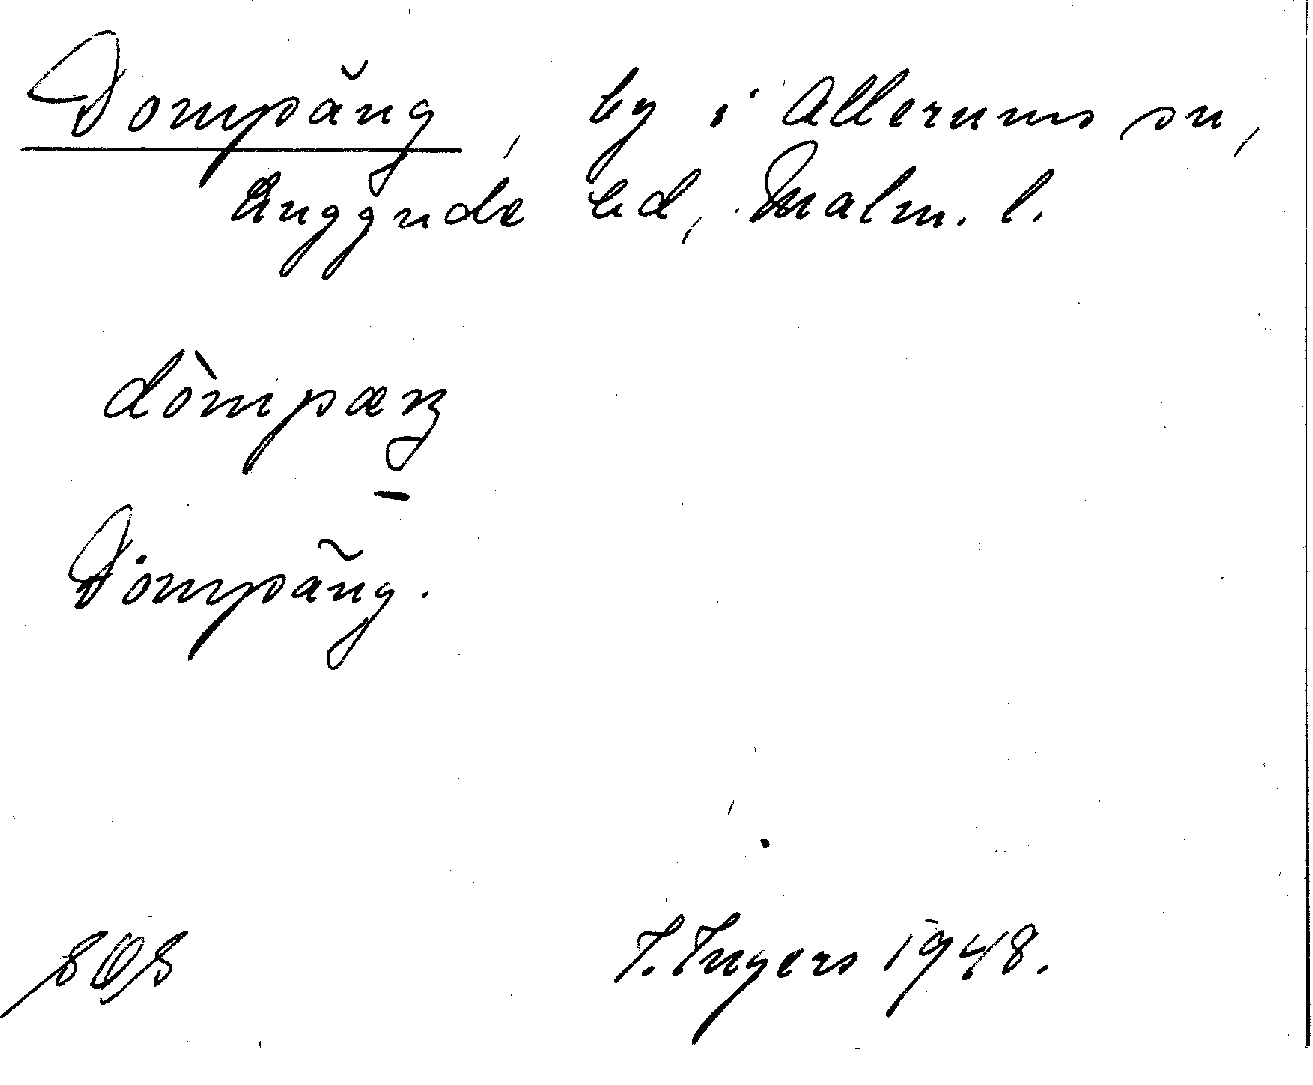 Dompäng, by i Allerums sn,
Luggude hd, Malm. l.
dòmpæŋ
Dompäng.
SOS I. Ingers 1948.